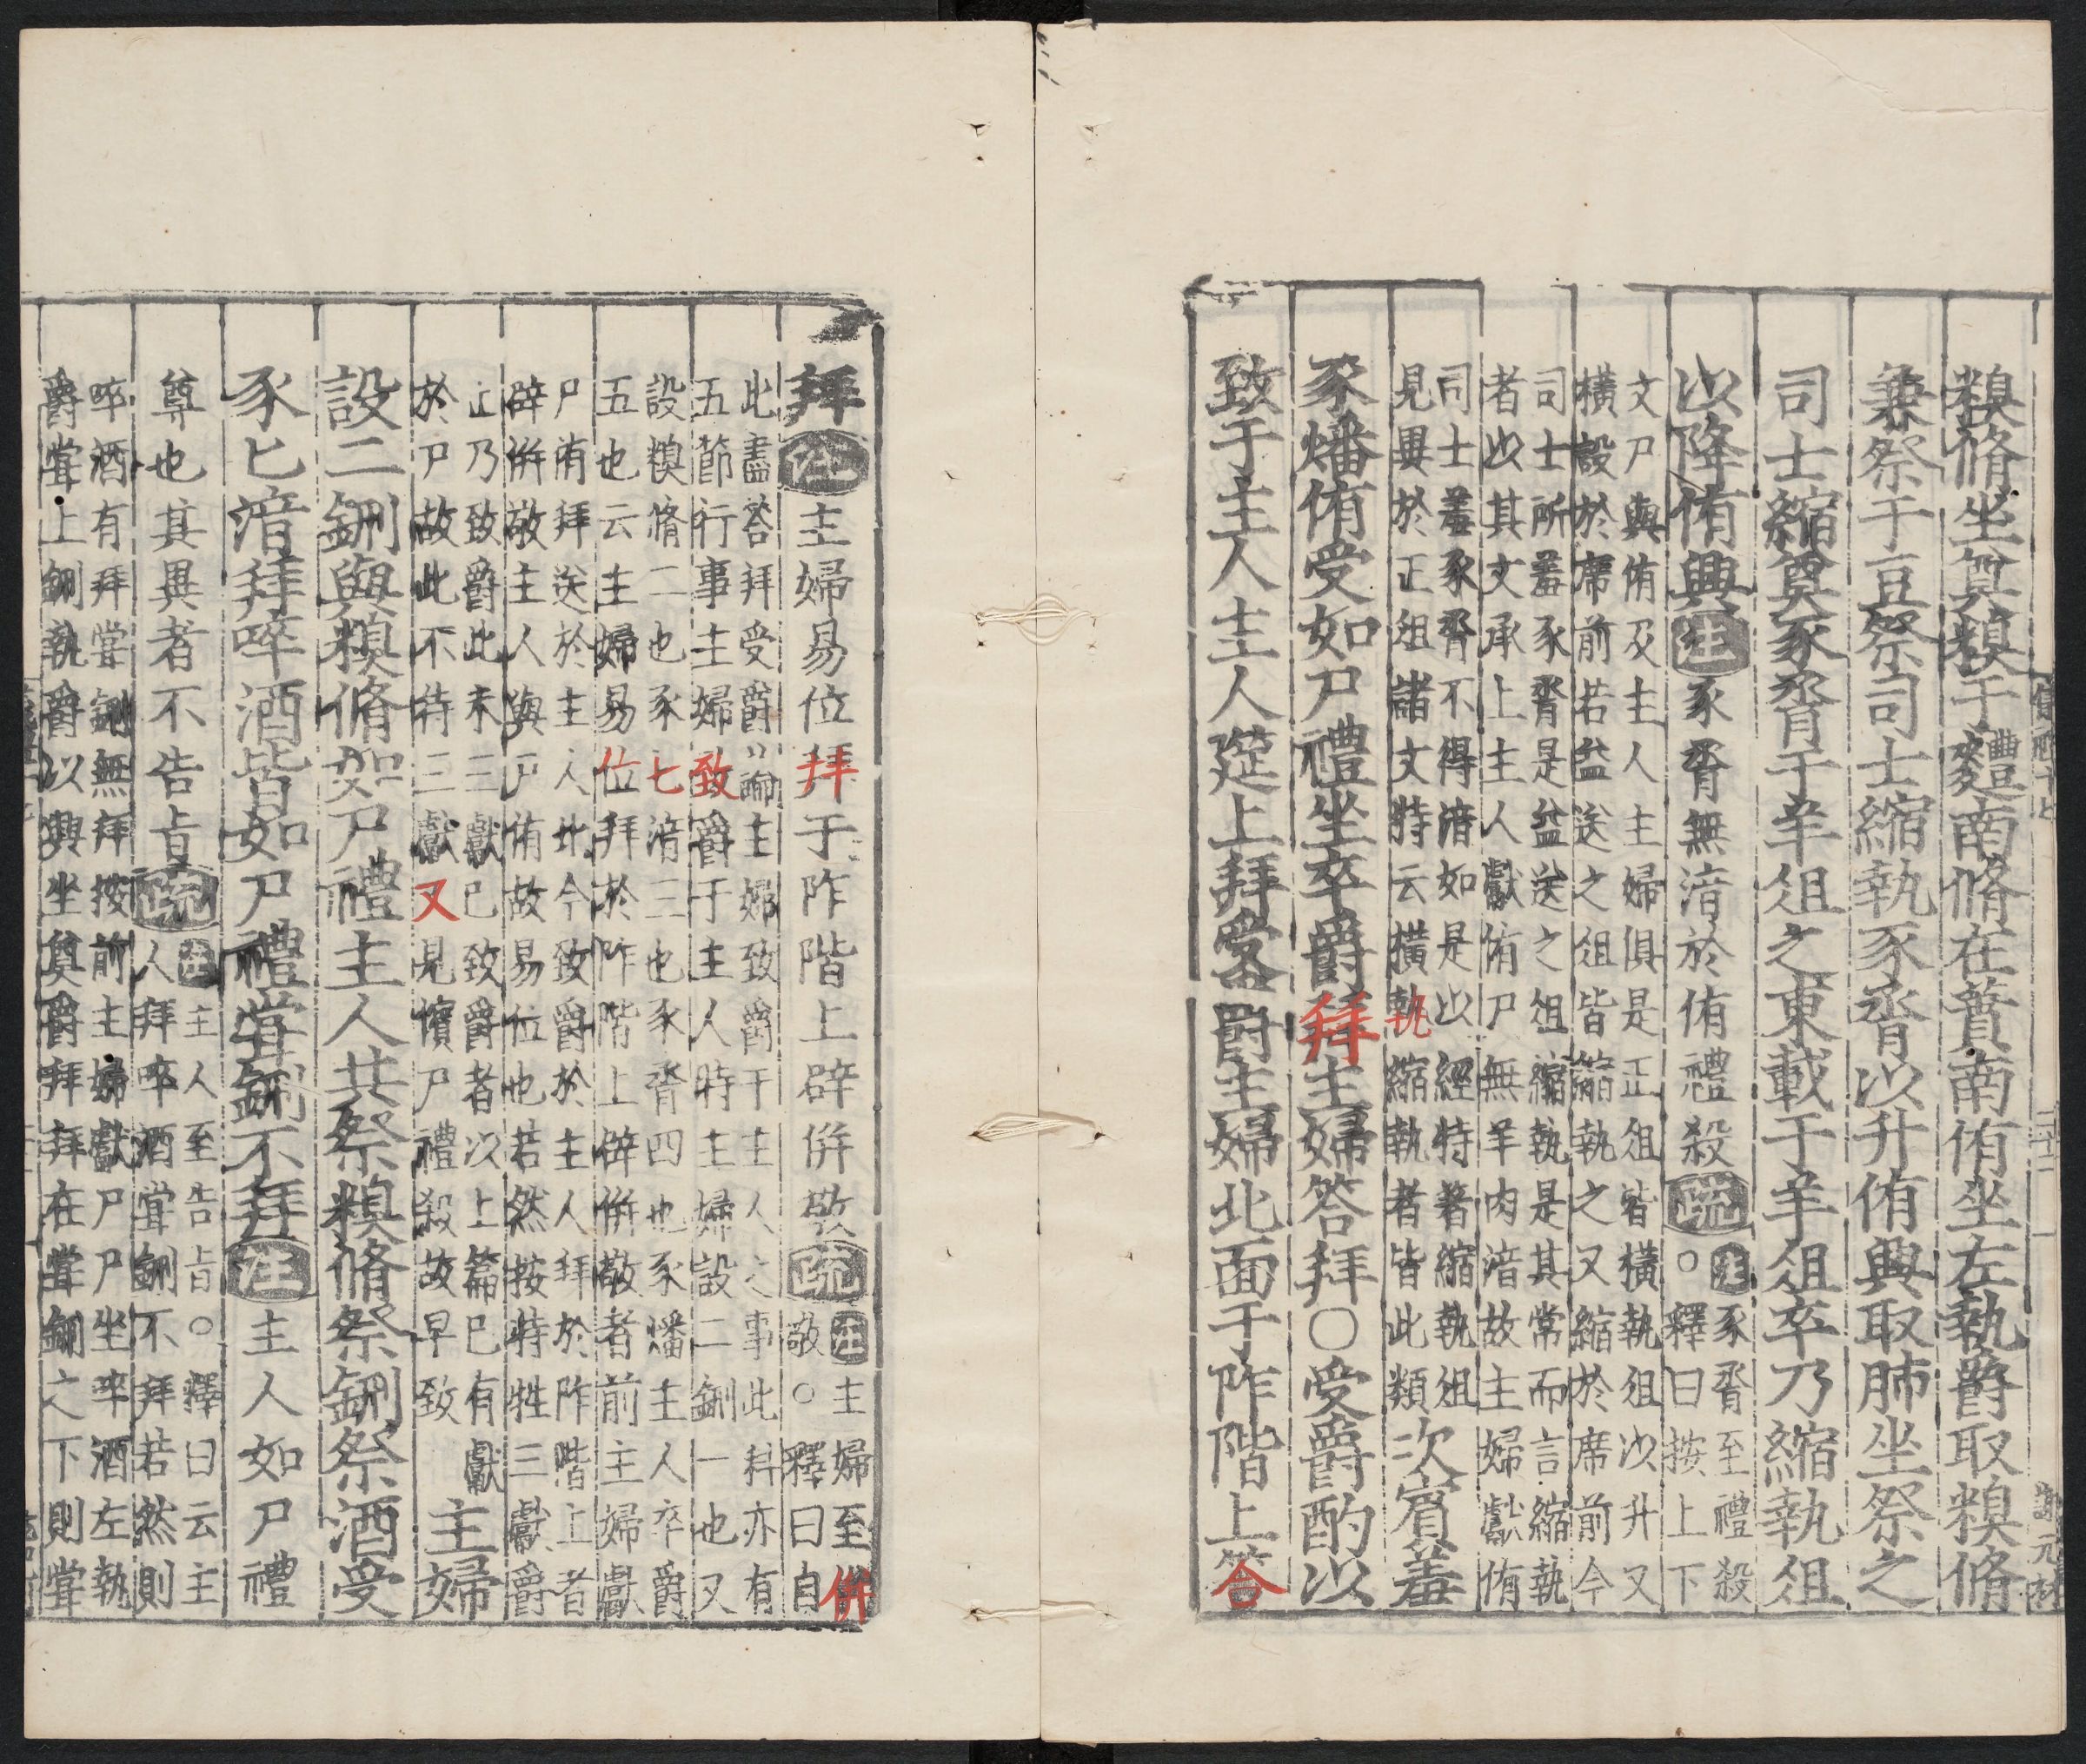 糗脩坐奠糗于麷南脩在蕡南侑坐左執爵取糗脩
兼祭于豆祭司士縮執豕脀以升侑興取肺坐祭之
司士縮奠豕脀于羊俎之東載于羊俎卒乃縮執俎
以降侑興注豕脀無湆於侑禮殺疏注豕脀至禮殺
○釋曰按上下
文尸與侑及主人主婦俱是正俎皆橫執俎以升又
橫設於席前若益送之俎皆縮執之又縮於席前今
司士所羞豕脀是益送之俎縮執是其常而言縮執
者以其文承上主人獻侑尸無羊肉湆故主婦獻侑
司士羞豕脀不得湆如是以經特著縮執俎
見異於正俎諸文特云橫執縮執者皆此類
次賓羞
豕燔侑受如尸禮坐卒爵拜主婦答拜○受爵酌以
致于主人主人筵上拜受爵主婦北面于阼階上答
拜注主婦易位拜于阼階上辟併敬疏注主婦至併
敬○釋曰自
此盡荅拜受爵論主婦致爵于主人之事此科亦有
五節行事主婦致爵于主人時主婦設二鉶一也又
設糗脩二也豕匕湆三也豕脀四也豕燔主人卒爵
五也云主婦易位拜於阼階上辟併敬者前主婦獻
尸侑拜送於主人北今致爵於主人拜於阼階上者
辟併敬主人與尸侑故易位也若然按特牲三獻爵
止乃致爵此未三獻已致爵者以上篇已有獻
於尸故此不待三獻又見儐尸禮殺故早致
主婦
設二鉶與糗脩如尸禮主人共祭糗脩祭鉶祭酒受
豕匕湆拜啐酒皆如尸禮嘗鉶不拜注主人如尸禮
尊也其異者不告旨疏注主人至告旨○釋曰云主
人拜啐酒嘗鉶不拜若然則
啐酒有拜嘗鉶無拜按前主婦獻尸尸坐啐酒左執
爵嘗上鉶執爵以興坐奠爵拜拜在嘗鉶之下則嘗